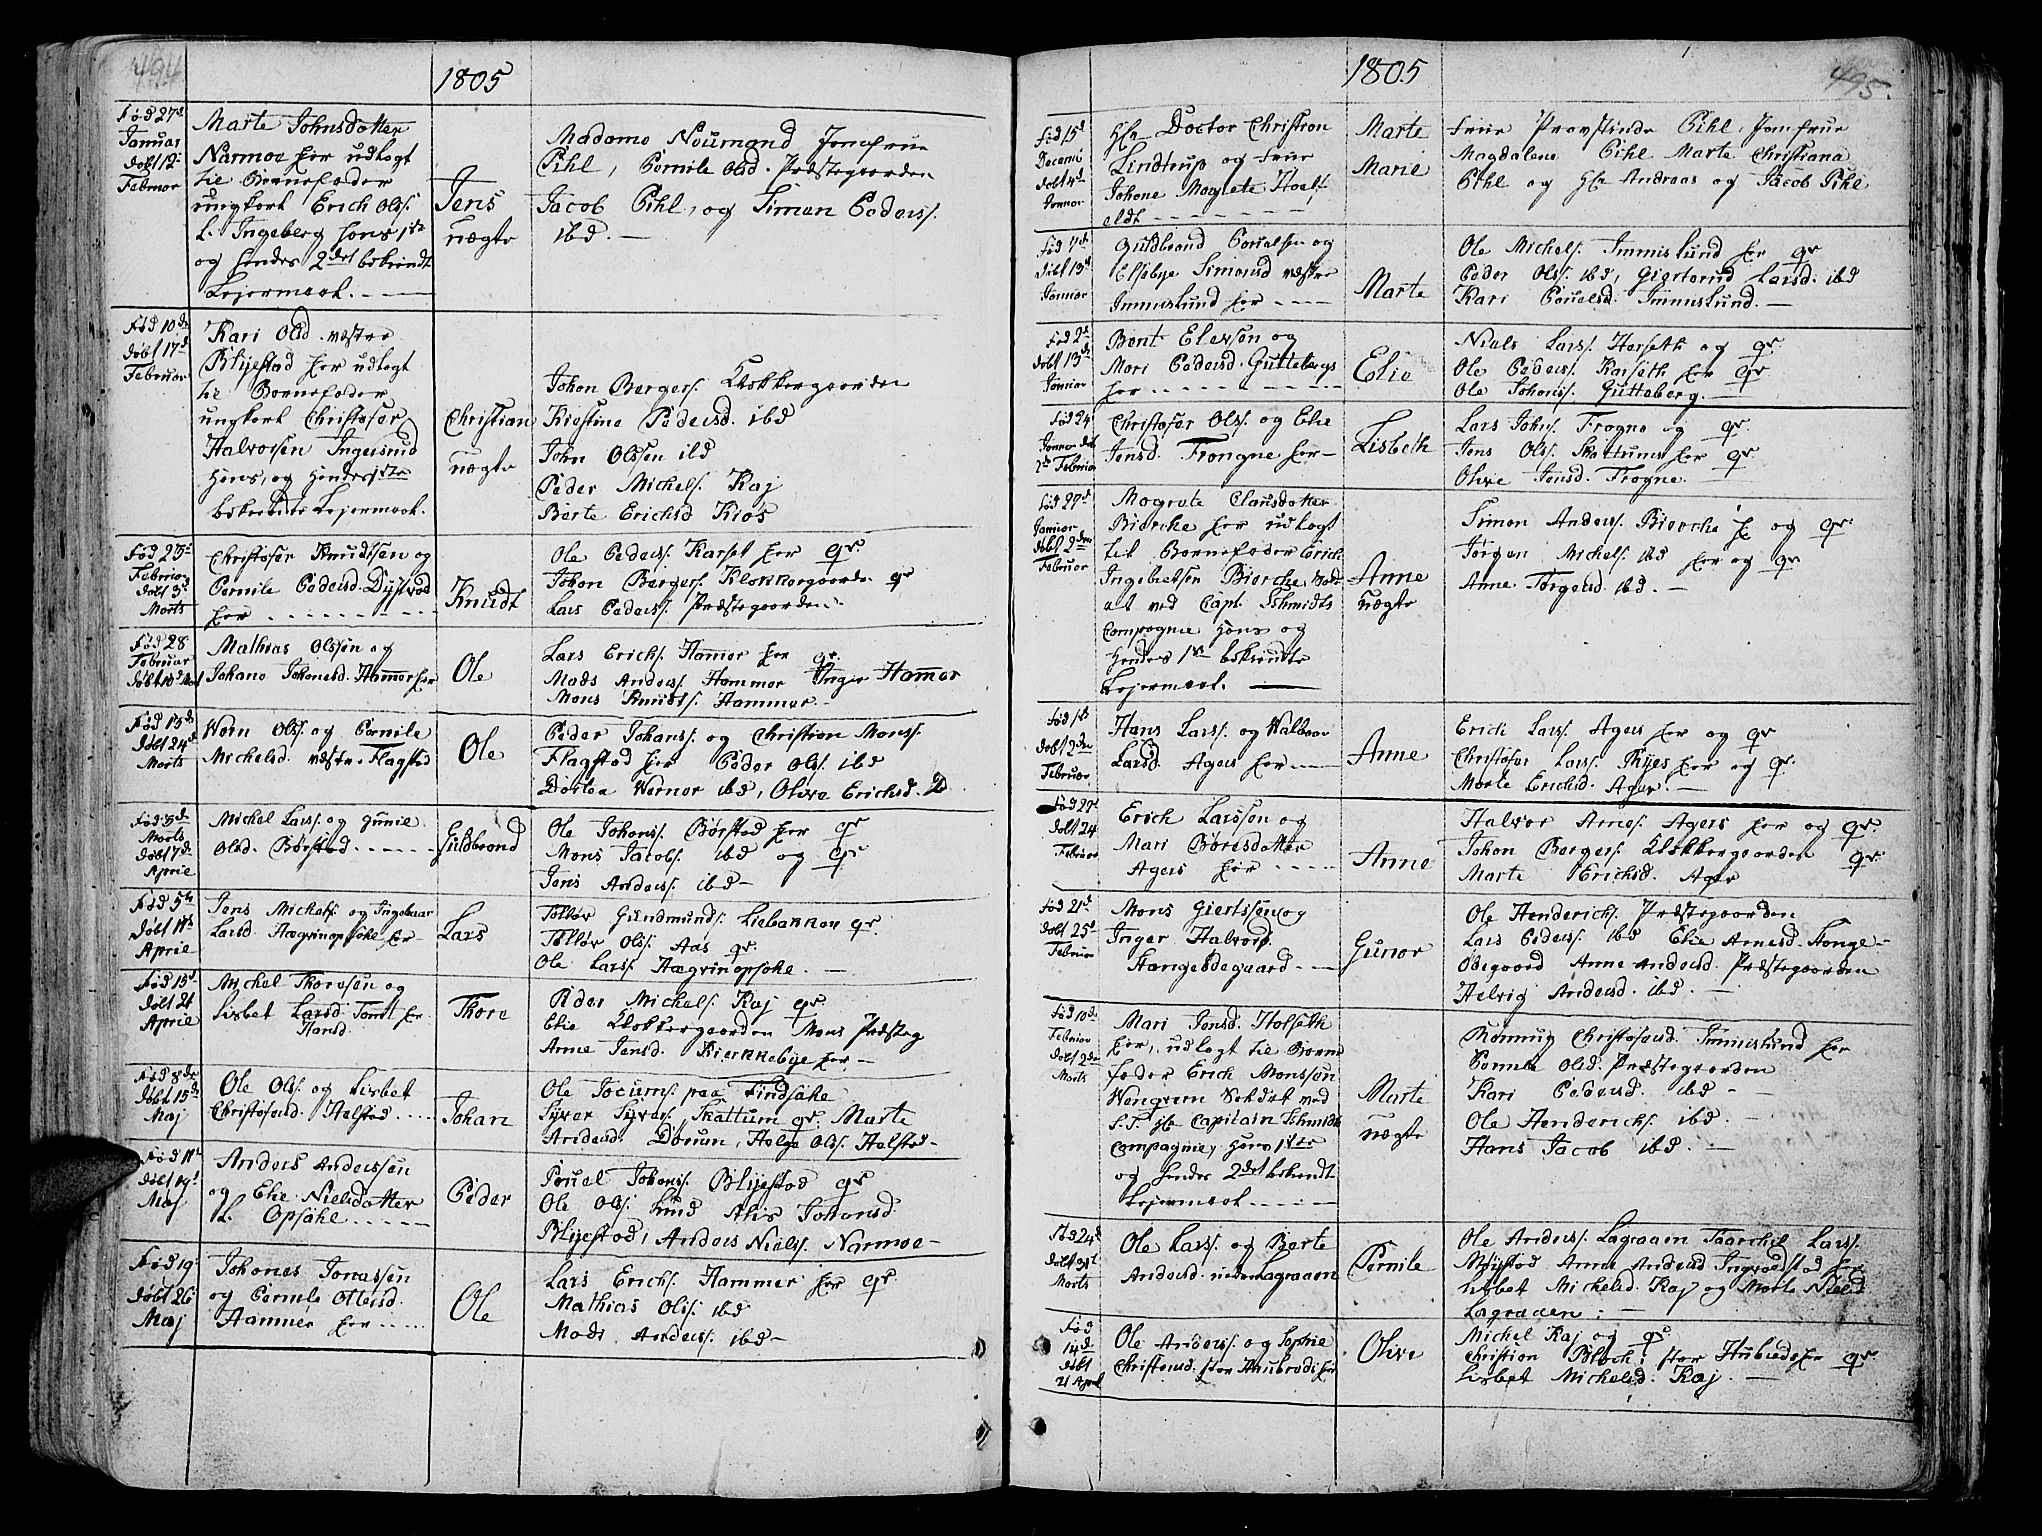 494
1805
Fød 27d
Januar
døbt 12
Februar
Marte Johnsdatter
Narmoe her udlagt
til Barnefader
ungkarl Erich Ols:
L. Ingeberg hans 1ste
og hendes 2det bekiendt
Lejermaal. —
Jens
uægte
Madame Neumand Jomfrue
Pihl, Pernile Olsd. Præstegaarden
Jacob Pihl, og Simen Peders:
ibd. —
Fød 10de
døbt 17d
Februar
Kari Olsd. væstre
Blijestad her udlagt
til Barnefader
ungkarl Christofer
Halvorsen Ingersrud
Hans, og Hendes 1ste
bekiendte Lejermaal.
Christian
uægte
Johan Bergers. Klokkergaarden
Kirstine Pedersd. ibd
John Olssen ibd
Peder Michels. Kaj
Berte Erichsd Kios
Fød 23d
Februar
døbt 3d
Marts
Christofer Knudtsen og
Pernile Pedersd. Dystvad
her
Knudt
Ole Peders. Karset her qr.
Johan Bergers. Klokkergaarden qr
Lars Peders: Præstegaarden.
Fød 28
Februar
døbt 10d Mart
Mathias Olssen og
Johane Johanesd. Hammer her
Ole
Lars Erichs. Hammer her qr.
Mads Anders: Hammer Inger Hammer
Mons Knudts. Hammer
Fød 13de
døbt 24d
Marts
Wern Ols: og Pernile
Michelsd. væstre Flagstad
Ole
Peder Johans: og Christian Mons:
Flagstad her Peder Ols: ibd
Dortea Werner ibd, Oliva Erichsd. ibd
Fød 3de
Marts
døbt 7de
Aprie
Michel Lars: og Gunie
Olsd. Børstad
Guldbrand
Ole Johans: Børstad her qr
Mons Jacobs: ibd og qr
Jens Anders: ibd —
Fød 5te
døbt 11d
Aprie
Jens Michels: og Ingebaar
Larsd. Hægrinopsahl her
Lars
Tolløv Gundmunds: Liebannen qr
Tolløv Ols: Aas qr.
Ole Lars: Hægrinopsahl. —
Fød 15d
døbt 21
Aprie
Michel Thoresen og
Lisbet Larsd Tomt her
Hansd.
Thore
Peder Michels. Kaj qr.
Elie Klokkergaarden Mons Præsteg
Anne Jensd. Kierkkebye her —
Fød 8de
døbt 15de
Maj
Ole Ols. og Lisbet
Christofersd. Halstad
Johan
Ole Jocums: paa Findsahl
Syver Syvers: Skattum qr. Marte
Andersd. Dørum, Helge Ols. Halstad —
Fød 11te
døbt 19d
Maj
Anders Anderssøn
og Elie Nielsdatter
L. Opsahl
Peder
Pouel Johans: Blijestad qr
Ole Ols: Lund Alis Johansd
Blijestad, Anders Niels: Narmoe —
Fød 19
døbt 26
Maj
Johanes Jonassen
og Pernile Ottersd.
Hammer her
Ole
Lars Erichs: Hammer her qr.
Mathias Ols: ibd
Mads Anders: ibd —
495.
1805
Fød 15d
Decemb
døbt 4d
Januar
Hr. Doctor Christian
Lindtrup og Frue
Johane Magrete Hoel
feldt
Marte
Marie
Frue Provstinde Pihl, Jomfrue
Magdalene Pihl Marte Christiana
Pihl og Hr Andreas og Jacob Pihl
Fød 7de
døbt 13d
Januar
Guldbrand Pouelsen og
Elsebye Simensd væstre
Immislund her
Marte
Ole Michels. Immislund her qr
Peder Ols: ibd, Giertrud Larsd. ibd
Kari Pouelsd. Immislund. —
Fød 2d
døbt 13de
Januar
Bent Elevsen og
Mari Pedersd. Gutteberg
her
Elie
Niels Lars: Horseth og qr.
Ole Peders: Karseth her qr
Ole Johans: Gutteberg. —
Fød 24
Januar døbt
2de Februar
Christofer Ols: og Elie
Jensd. Frongne her —
Lisbeth
Lars Johns Frogne og qr.
Jens Ols: Skattum her qr.
Olive Jensd. Frogne. —
Fød 27d
Januar
døbt 2den
Februar
Magrete Clausdatter
Bierche her udlagt
til Barnefader Erich
Ingebretsen Bierche, Sold
at ved Capt. Schmidts
Compagnie Hans og
Hendes 1ste bekiendte
Lejermaal. —
Anne
uægte
Simen Anders: Bierche her og qr.
Jørgen Michels: ibd her og qr.
Anne Torgersd. ibd. —
Fød 1ste
døbt 2den
Februar
Hans Lars: og Walbaar
Larsd. Agers her
Anne
Erich Lars: Agers her og qr
Christofer Lars: Thyes her og qr.
Marte Erichsd. Ager. —
Fød 27d
døbt 24
Februar
Erich Larssen og
Mari Børesdatter
Agers her
Anne
Halvor Arnes: Agers her og qr.
Johan Bergers: Klokkergaarden qr.
Marte Erichsd. Ager
Fød 21d
døbt 25d
Februar
Mons Giertssen og
Inger Halvorsd.
Stangesdegaard
Gunor
Ole Henderichs. Præstegaarden
Lars Peders: ibd Elie Arnesd. Stange —
Ødegaard Anne Andersd. Præstegaarden
Helvig Andersd. ibd. —
Fød 10de
Februar
døbt 2den
Marts
Mari Jensd. Holseth
her, udlagt til Barne
fader Erich Monssen
Wengrim Soldat ved
S.T. Hr Capitain Schmidts
Compagnie, Hans 1ste
og Hendes 2det bekiendte
Lejermaal.
Marte
uægte
Rønnug Christofersd. Immislund her
Pernile Olsd. Præstegaarden
Kari Pedersd. ibd —
Ole Henderichs: ibd.
Hans Jacob ibd. —
Fød 24d
døbt 31te
Marts
Ole Lars: og Berte
Andersd. neder Lagraaen
Pernile
Ole Anders: Lagraaen Taarchel Lars:
Møystad Anne Andersd Ingvoldstad her
Lisbet Michelsd. Kaj og Marte Nielsd
Lagraaen: —
Fød
14de
døbt
21 April
Ole Anders: og Sophie
Christensd. stor Huusbrodis her
Olive
Michel Kaj og qr
Christian Bloch: stor Hubreds her qr.
Lisbet Michelsd. Kaj. —